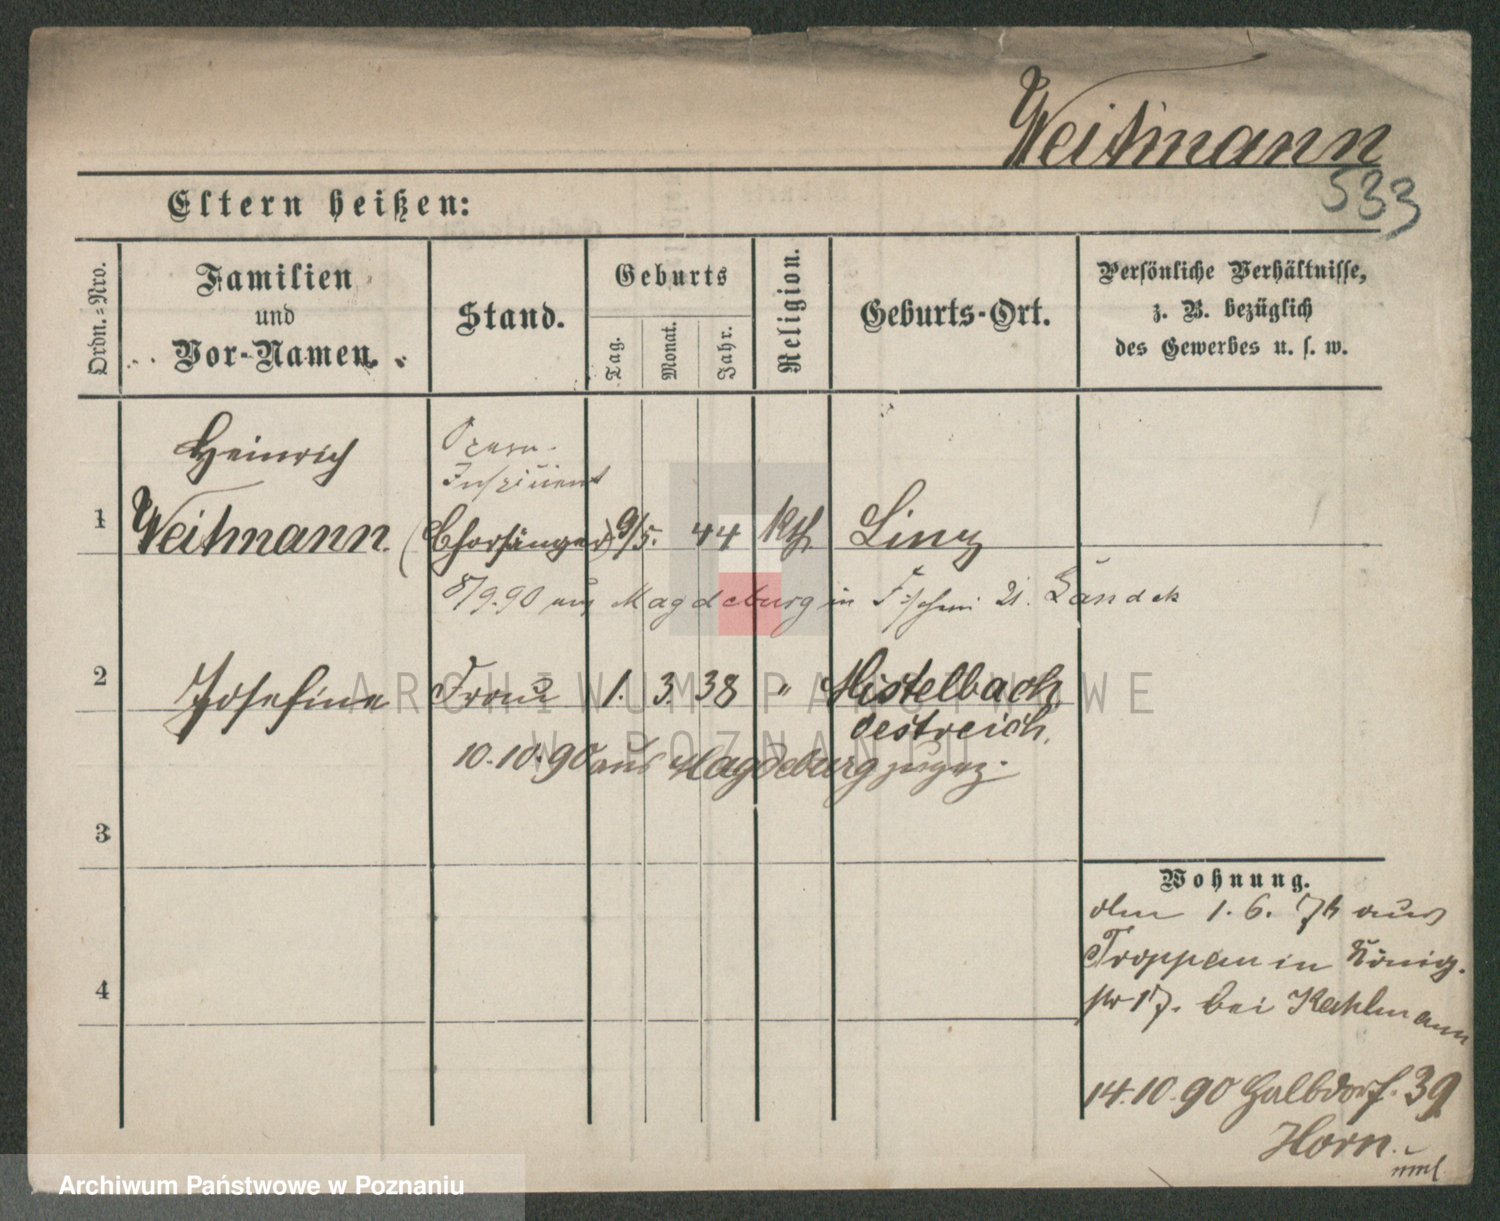 Weitmann
533
Eltern heißen:
Ordn.-Nro.
Familien
und
Vor-Namen.
Stand.
Geburts
Tag.
Monat.
Jahr.
Religion.
Geburts-Ort.
Persönliche Verhältnisse,
z. B. bezüglich
des Gewerbes u. s. w.
Heinrich
Opern-
Inspicient
1 Weitmann. (Chorsänger) 9/5. 44 kth Linz
8/9.90 aus Magdeburg in
2 Josefine Frau 1. 3. 38 " Mistelbach
Oestreich.
10.10.90 aus Magdeburg zugez.
3
4
Wohnung.
den 1. 6. aus
Troppau in König.
str 17. bei Kahlmann
14.10.90 Halbdorf. 39
Horn.
ARCHIWUM PAŃSTWOWE
W POZNANIU
Archiwum Państwowe w Poznaniu